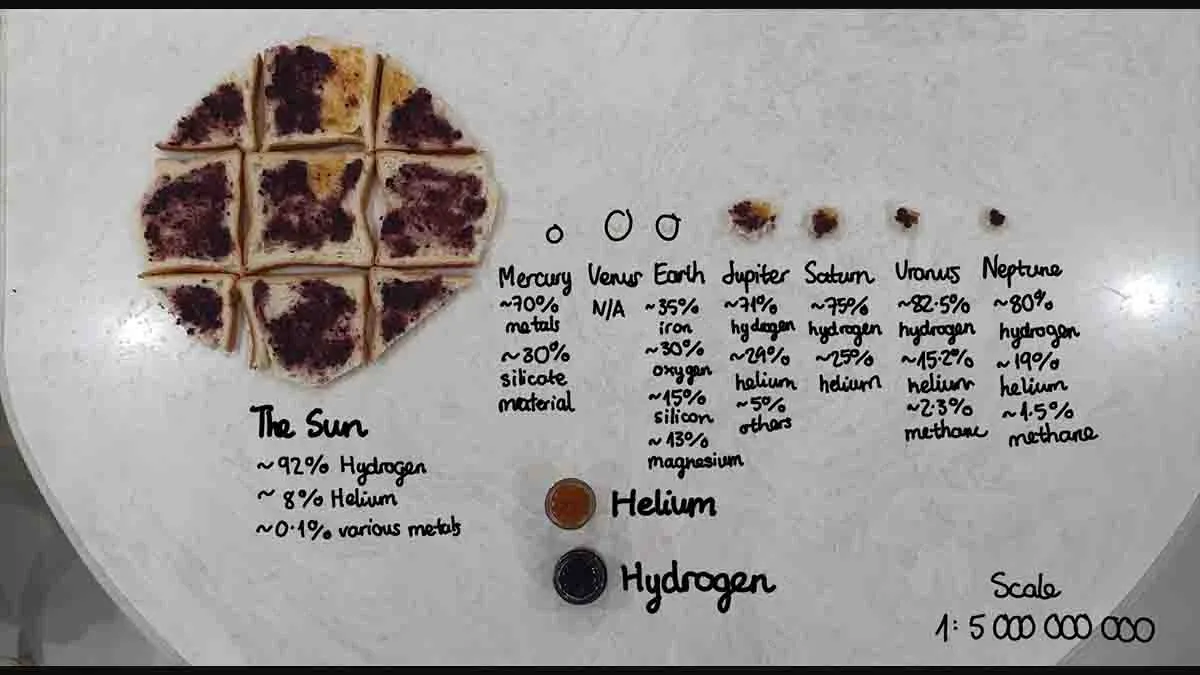 The Sun
~92% Hydrogen
~ 8% Helium
~0.1% various metals
Mercury
~70%
metals
~30%
silicate
material
Venus
N/A
Earth
~35%
iron
~30%
oxygen
~15%
silicon
~13%
magnesium
Jupiter
~71%
hydogen
~29%
helium
~5%
others
Saturn
~75%
hydrogen
~25%
helium
Uranus
~82.5%
hydrogen
~15.2%
helium
~2.3%
methane
Neptune
~80%
hydrogen
~19%
helium
~1.5%
methane
Helium
Hydrogen
Scale
1: 5 000 000 000